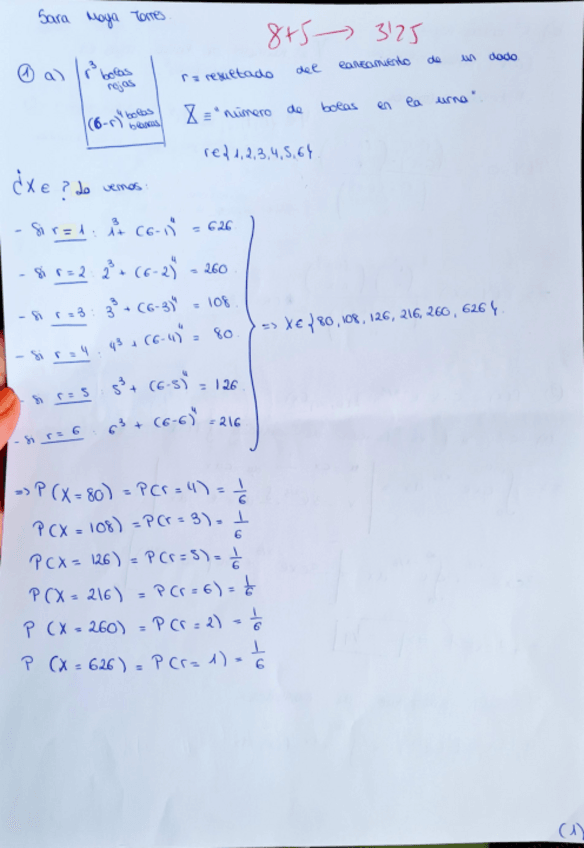 Sara Moya Torres.
8+5 → 3'25
① a) r³ bolas rojas r = resultado del lanzamiento de un dado
(6-r)⁴ bolas blancas X ≡ "número de bolas en la urna".
r∈{1,2,3,4,5,6}.
¿X ∈ ? Lo vemos:
- Si r = 1 : 1³ + (6-1)⁴ = 626
- Si r = 2 : 2³ + (6-2)⁴ = 260
- Si r = 3 : 3³ + (6-3)⁴ = 108
- Si r = 4 : 4³ + (6-4)⁴ = 80
=> X∈{80, 108, 126, 216, 260, 626}.
- Si r = 5 : 5³ + (6-5)⁴ = 126
- Si r = 6 : 6³ + (6-6)⁴ = 216
=> P(X = 80) = P(r = 4) = 1/6
P(X = 108) = P(r = 3) = 1/6
P(X = 126) = P(r = 5) = 1/6
P(X = 216) = P(r = 6) = 1/6
P (X = 260) = P(r = 2) = 1/6
P (X = 626) = P(r = 1) = 1/6
(1)